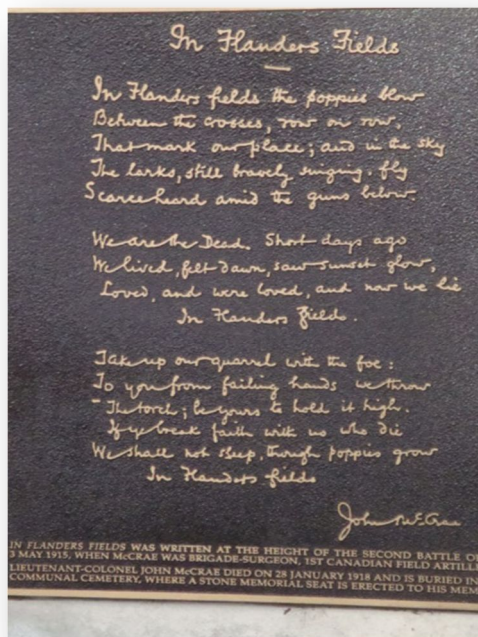 In Flanders Fields
In Flanders fields the poppies blow
Between the crosses, row on row,
That mark our place; and in the sky
The larks, still bravely singing, fly
Scarce heard amid the guns below.
We are the Dead. Short days ago
We lived, felt dawn, saw sunset glow,
Loved, and were loved, and now we lie
In Flanders fields.
Take up our quarrel with the foe:
To you from failing hands we throw
The torch; be yours to hold it high.
If ye break faith with us who die
We shall not sleep, though poppies grow
In Flanders fields
John McCrae
IN FLANDERS FIELDS WAS WRITTEN AT THE HEIGHT OF THE SECOND BATTLE OF
3 MAY 1915, WHEN McCRAE WAS BRIGADE-SURGEON, 1ST CANADIAN FIELD ARTILL
LIEUTENANT-COLONEL JOHN McCRAE DIED ON 28 JANUARY 1918 AND IS BURIED IN
COMMUNAL CEMETERY, WHERE A STONE MEMORIAL SEAT IS ERECTED TO HIS MEM